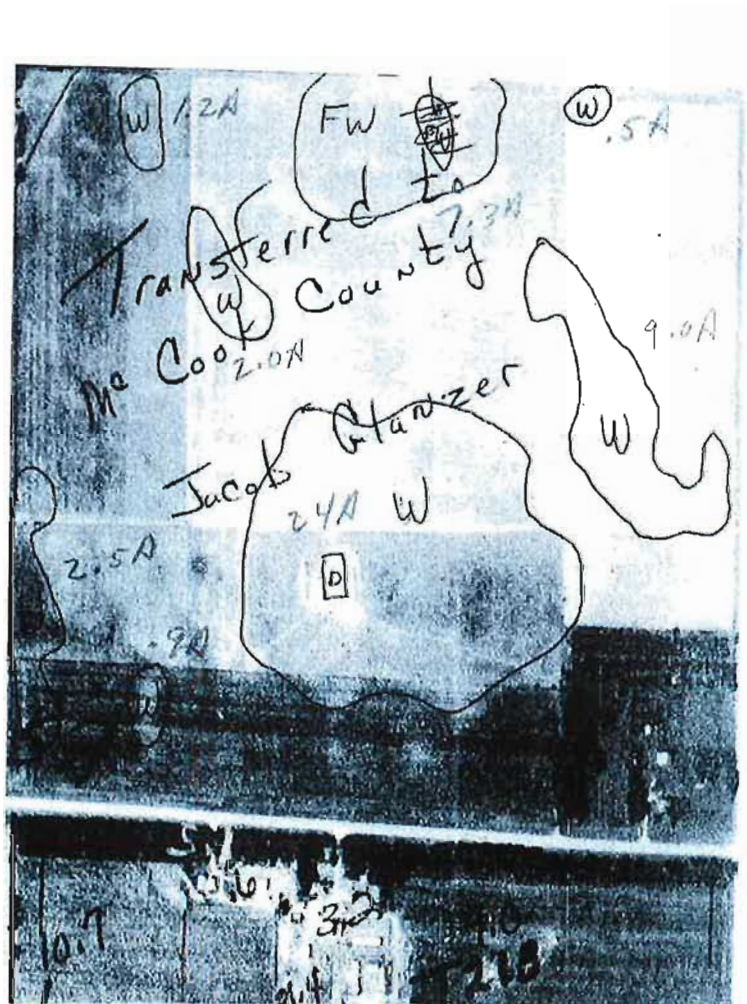 W 1.2A
FW
W
.5A
Transferred to
7.3A
W
Mc Cook County
2.0A
9.0A
W
Jacob Glanzer
24A W
2.5A
D
.9A
W
0.7
3.2